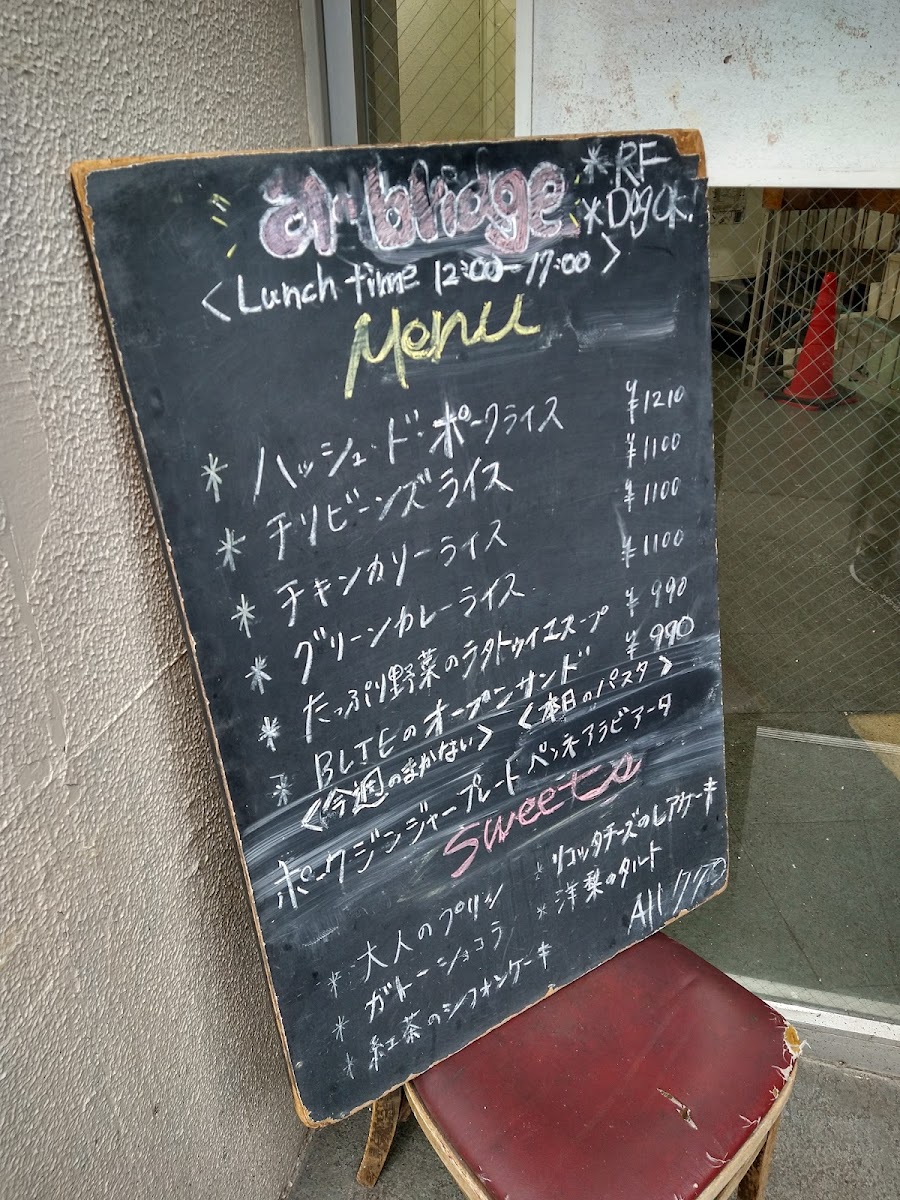 ar bridge
*RF
*Dog ok!
<Lunch time 12:00-17:00>
Menu
* ハッシュ・ド・ポークライス ¥1210
* チリビーンズライス ¥1100
* チキンカリーライス ¥1100
* グリーンカレーライス ¥1100
* たっぷり野菜のラタトゥイユスープ ¥990
* BLTEのオープンサンド ¥990
<今週のまかない> <本日のパスタ>
ポークジンジャープレート ペンネアラビアータ
Sweets
* 大人のプリン
* ガトーショコラ
* 紅茶のシフォンケーキ
* リコッタチーズのレアケーキ
* 洋梨のタルト
All 770